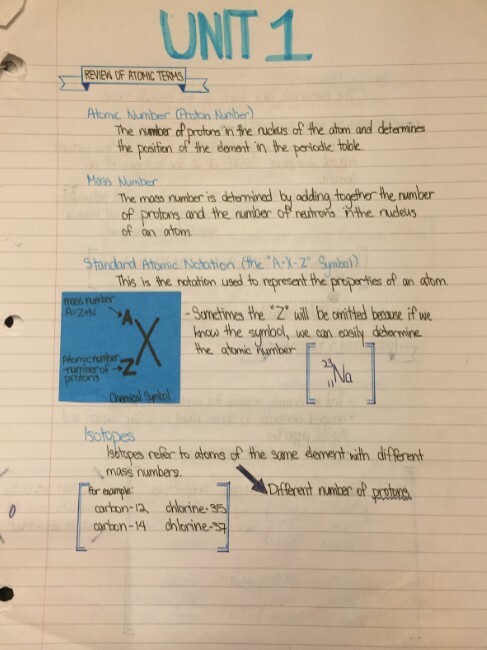 UNIT 1
REVIEW OF ATOMIC TERMS
Atomic Number (Proton Number)
The number of protons in the nucleus of the atom and determines
the position of the element in the periodic table.
Mass Number
The mass number is determined by adding together the number
of protons and the number of neutrons in the nucleus
of an atom.
Standard Atomic Notation (the "A-X-Z" Symbol)
This is the notation used to represent the properties of an atom.
mass number
A=Z+N
A
X
Atomic number
-number of
protons
Z
Chemical Symbol
- Sometimes the "Z" will be omitted because if we
know the symbol, we can easily determine
the atomic number
23
11
Na
Isotopes
Isotopes refer to atoms of the same element with different
mass numbers.
Different number of protons
For example:
carbon-12 chlorine-35
carbon-14 chlorine-37